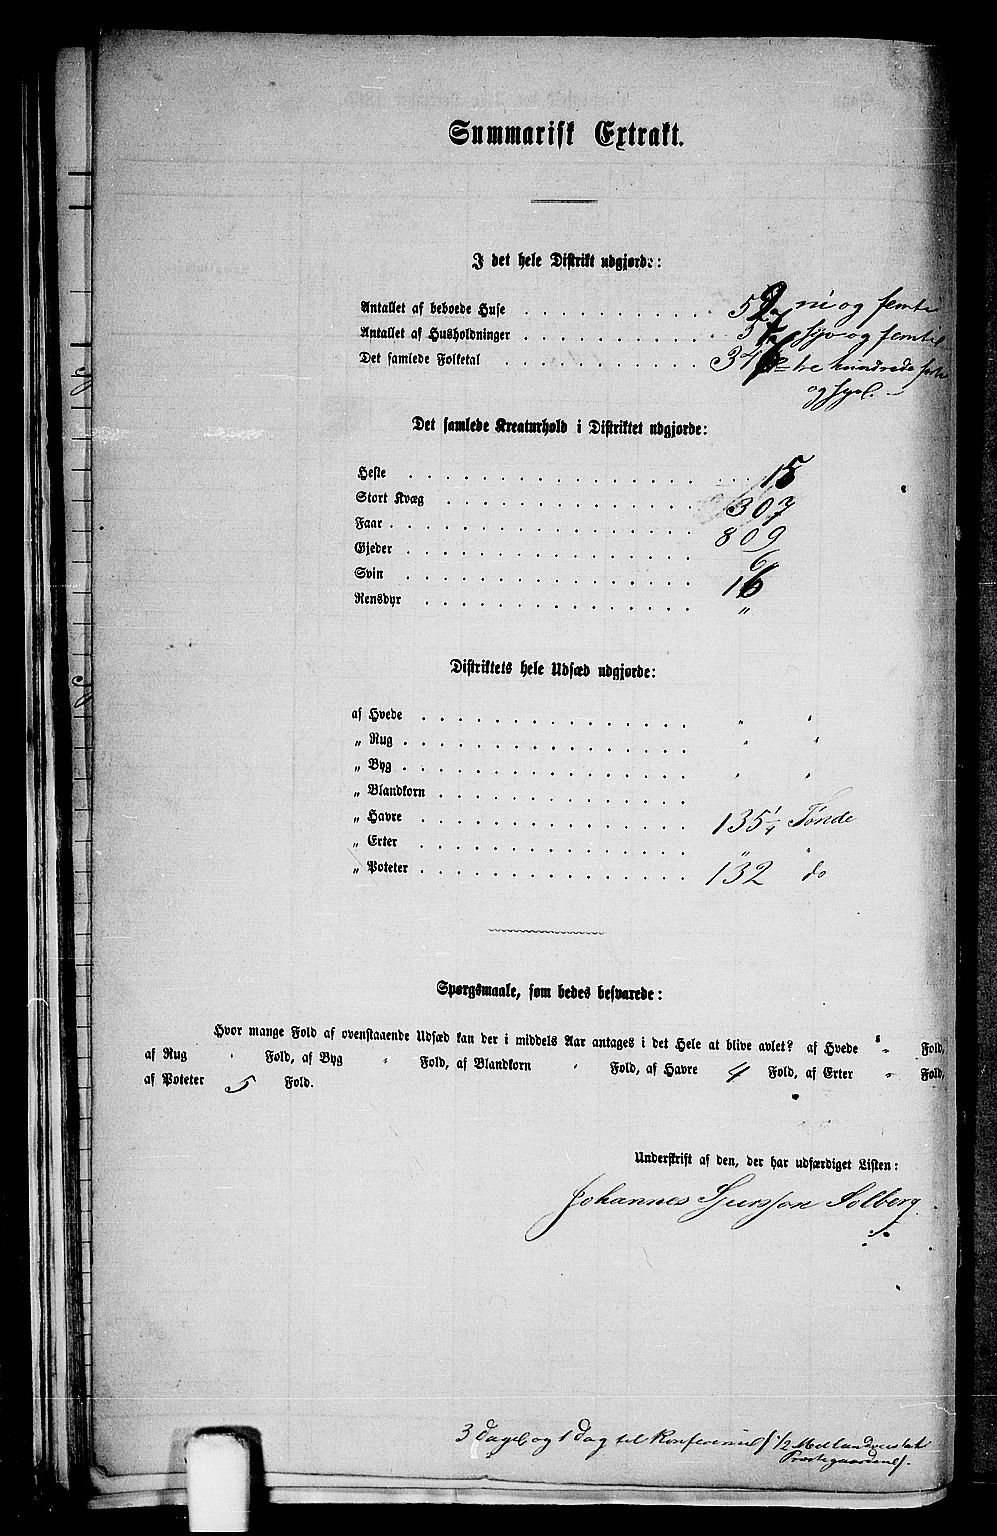 Summarisk Extrakt.
I det hele Distrikt udgjorde:
Antallet af beboede Huse 59 ni og femti
Antallet af Husholdninger 57 syv og femti
Det samlede Folketal 347 tre hundrede forti
og syv.
Det samlede Kreaturhold i Distriktet udgjorde:
Heste 15
Stort Kvæg 307
Faar 809
Gjeder 6
Svin 16
Rensdyr "
Distriktets hele Udsæd udgjorde:
af Hvede " "
" Rug " "
" Byg " "
" Blandkorn
" Havre 135 1/4 Tønde
" Erter " "
" Poteter 132 do
Spørgsmaale, som bedes besvarede:
Hvor mange Fold af ovenstaaende Udsæd kan der i middels Aar antages i det Hele at blive avlet? af Hvede " Fold,
af Rug " Fold, af Byg " Fold, af Blandkorn " Fold, af Havre 4 Fold, af Erter " Fold,
af Poteter 5 Fold.
Underskrift af den, der har udfærdiget Listen:
Johannes Sjursson Solberg
3 Dage og 1 Dag til Konferering 1/2
Præstegaarden